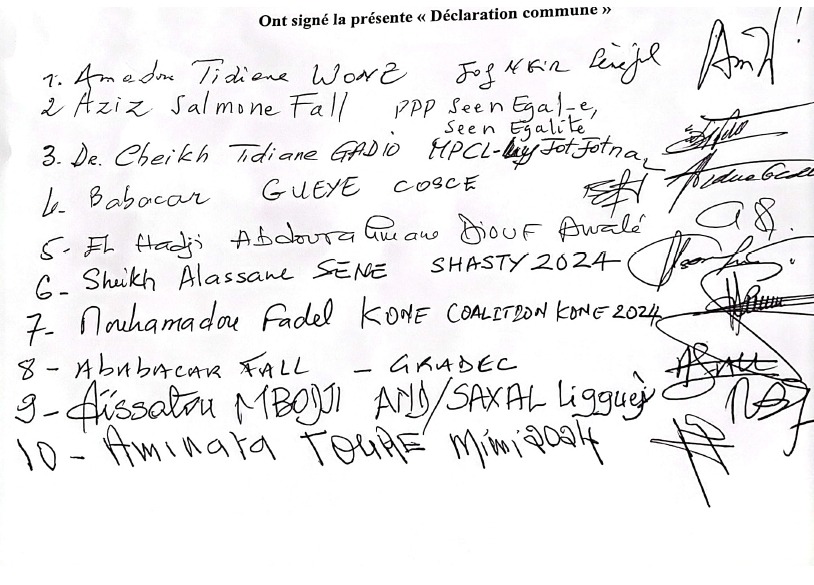 Ont signé la présente « Déclaration commune »
1. Amadou Tidiane WONE
2 Aziz Salmone Fall PPP Seen Egal-e,
Seen Egalité
3. De. Cheikh Tidiane GADIO MPCL- Jotna,
4. Babacar GUEYE COSCE
5- EL Hadji Abdourahmane DIOUF Awalé
6- Sheikh Alassane SENE SHASTY 2024
7- Mouhamadou Fadel KONE COALITION KONE 2024
8- Ababacar FALL - GRADEC
9- Aïssatou MBODJI AND/SAXAL Liggueÿ
10- Aminata TOURE Mimi2024